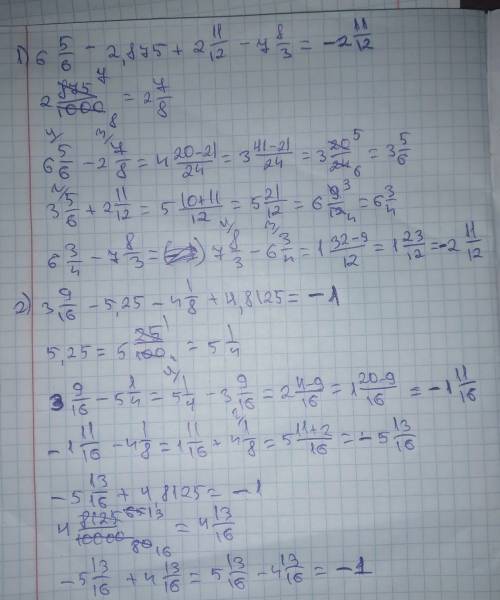 1) 6 5/6 - 2,875 + 2 11/12 - 7 8/3 = -2 11/12
2 875/1000 7/8 = 2 7/8
6 5/6 - 2 7/8 = 4 20-21/24 = 3 41-21/24 = 3 20/24 5/6 = 3 5/6
3 5/6 + 2 11/12 = 5 10+11/12 = 5 21/12 = 6 9/12 3/4 = 6 3/4
6 3/4 - 7 8/3 = 7 8/3 - 6 3/4 = 1 32-9/12 = 1 23/12 = -2 11/12
2) 3 9/16 - 5,25 - 4 1/8 + 4,8125 = -1
5,25 = 5 25/100 1 = 5 1/4
3 9/16 - 5 1/4 = 5 1/4 - 3 9/16 = 2 4-9/16 = 1 20-9/16 = -1 11/16
-1 11/16 - 4 1/8 = 1 11/16 + 4 1/8 = 5 11+2/16 = -5 13/16
-5 13/16 + 4,8125 = -1
4 8125/10000 65 13/80 16 = 4 13/16
-5 13/16 + 4 13/16 = 5 13/16 - 4 13/16 = -1